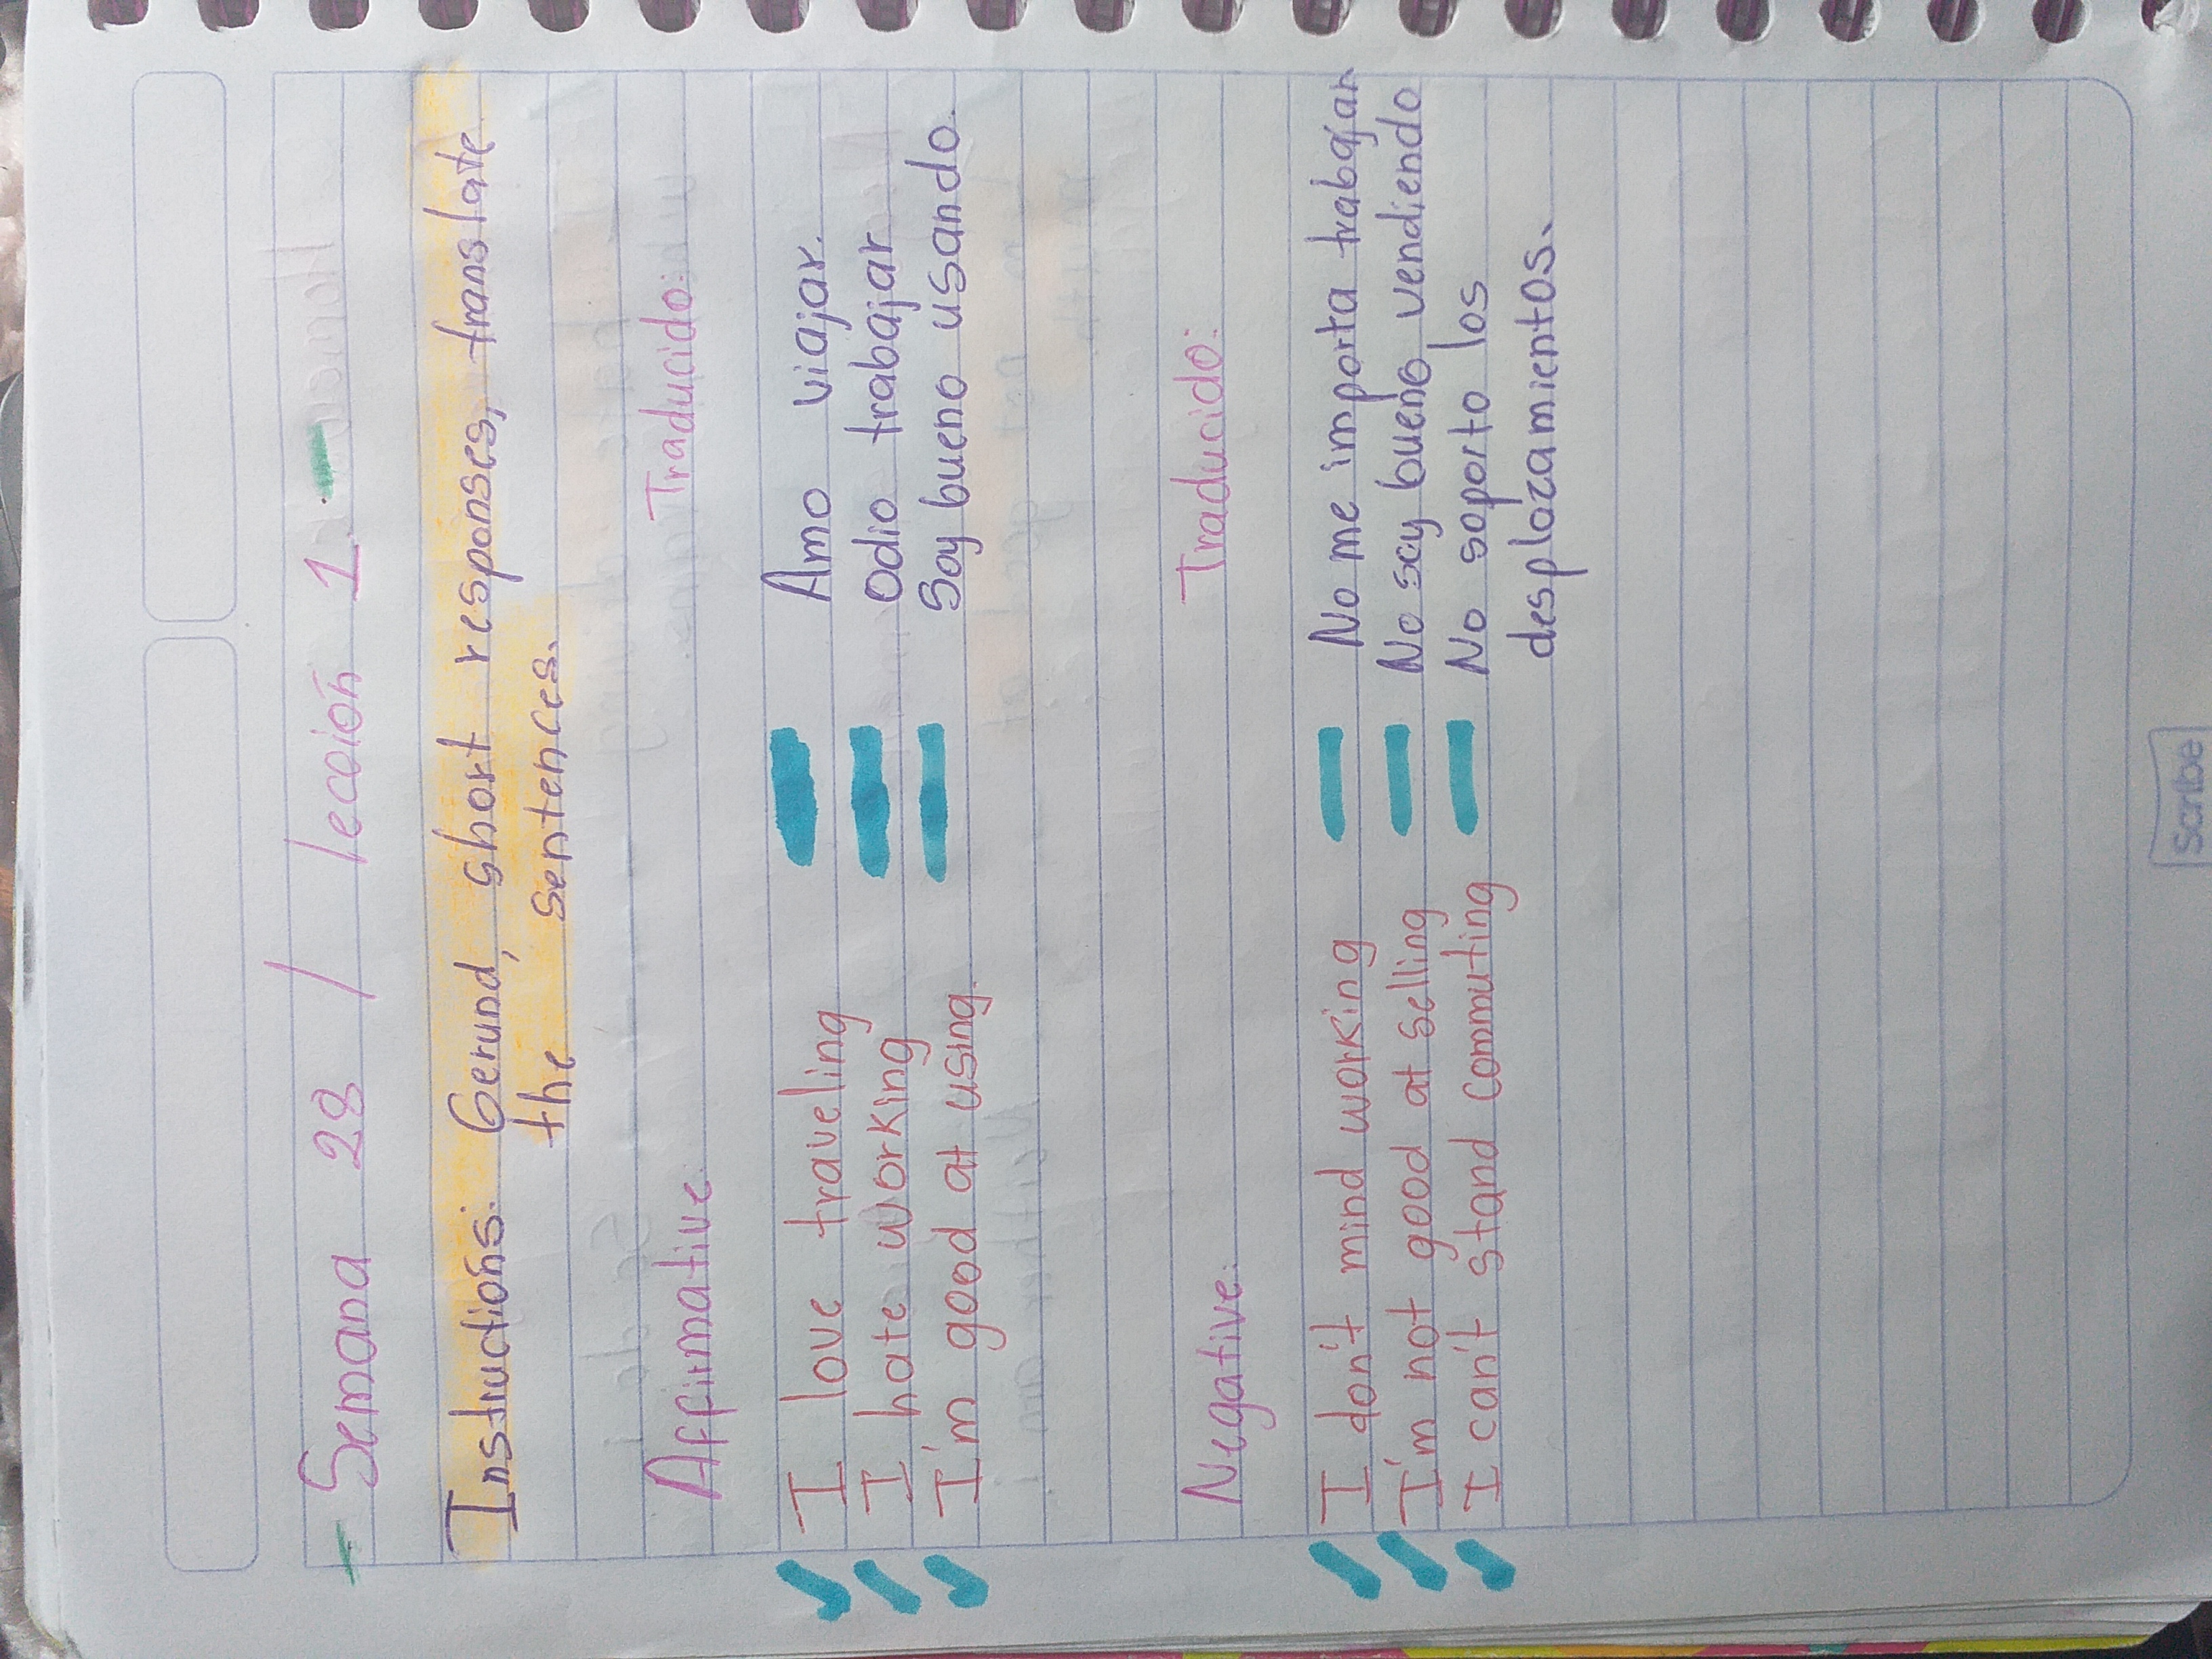 Semana 28 / lección 1.
Instructions: Gerund, short responses, translate
the sentences.
Affirmative. Traducido:
I love traveling Amo viajar.
I hate working Odio trabajar
I'm good at using. Soy bueno usando.
Negative. Traducido:
I don't mind working No me importa trabajar
I'm not good at selling No soy bueno vendiendo
I can't stand commuting No soporto los
desplazamientos.
Scribe